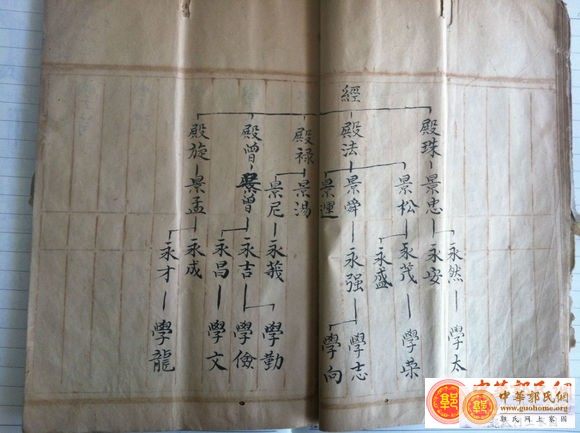 經
殿珠
殿法
殿禄
殿曾
殿旋
景忠
景松
景舜
景
景湯
景尼
景曾
景孟
永然
永安
永茂
永盛
永强
永
永吉
永昌
永成
永才
學太
學榮
學志
學向
學勤
學儉
學文
學龍
中華郭氏網
郭氏網上家園